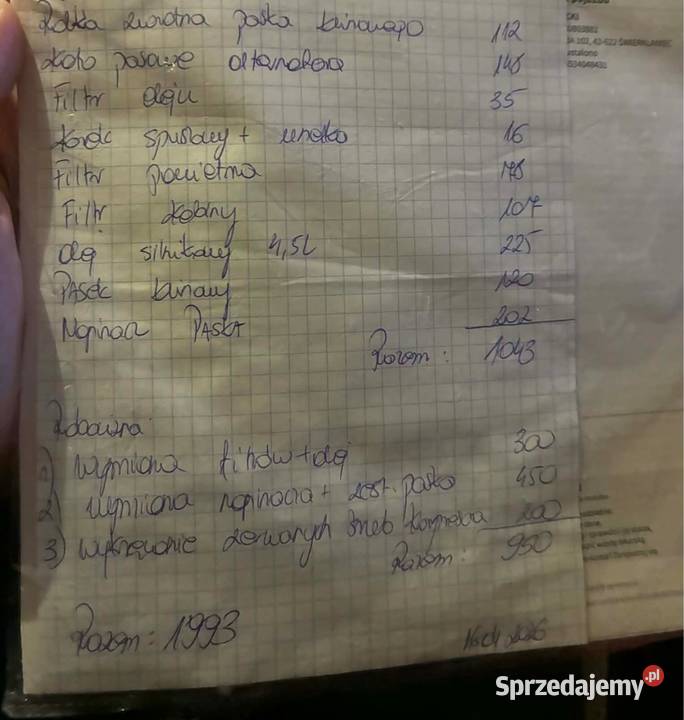 Rolka zwrotna paska klinowego 112
Koło pasowe alternatora 148
Filtr oleju 35
Korek spustowy + uszczelka 16
Filtr powietrza 78
Filtr kabiny 107
Olej silnikowy 4,5L 225
Pasek klinowy 120
Napinacz PASKA 202
Razem: 1043
Robocizna
1) wymiana filtrów + olej 300
2) wymiana napinacza + zest. paska 450
3) wykręcanie zerwanych śrub 200
Razem: 950
Razem: 1993
2026
Sprzedajemy.pl